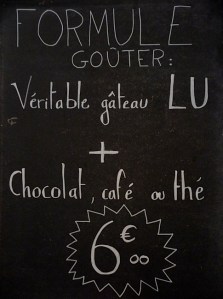 FORMULE
GOÛTER:
Véritable gâteau LU
+
Chocolat, café ou thé
6€00